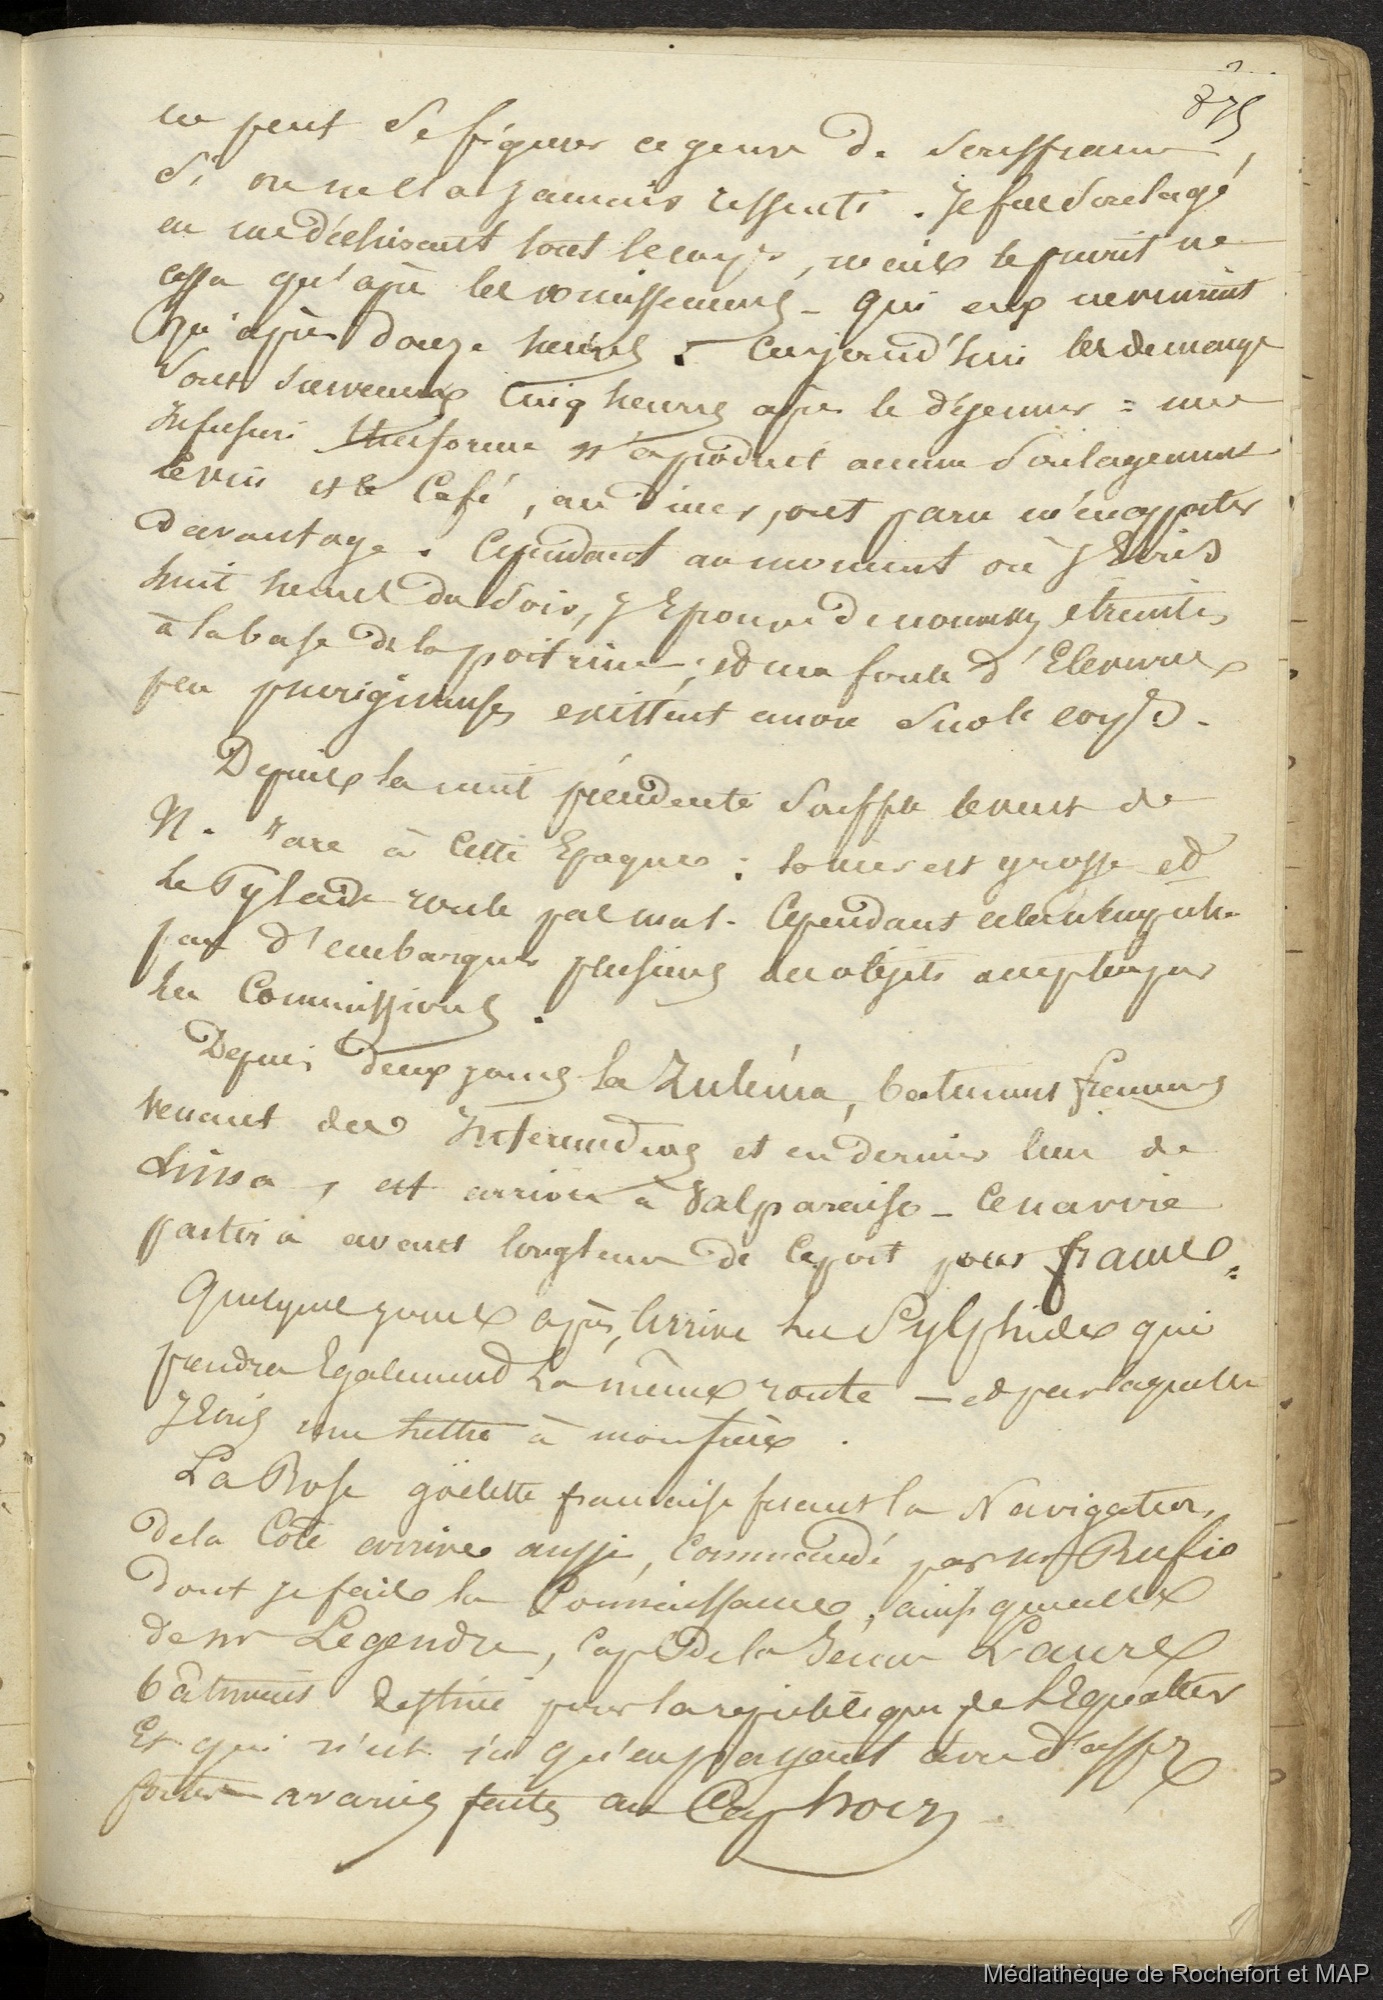 375
ne peut se figurer ce genre de souffrance,
si on ne l'a jamais ressenti. Je fus soulagé
en me déchirant tout le corps, mais le prurit ne
cessa qu'après les vomissements - qui eux ne vinrent
qu'après douze heures. Aujourd'hui les démange
sont survenus cinq heures après le déjeuner = une
Infusion théiforme n'a produit aucun soulagement
le vin et le Café, au diner, ont paru m'en apporter
davantage. Cependant au moment où J'Ecris
huit heures du soir, J'Eprouve de nouvelles étreintes
à la base de la poitrine; et une foule d'Elevures
peu prurigineuses existent encore sur le corps.
Depuis la nuit précédente souffle le vent de
N. rare à cette Epoque: la mer est grosse et
le Pylade roule pas mal. Cependant cela n'empêche
pas d'embarquer plusieurs des objets
les Commissions.
Depuis deux jours la Zuléma, bâtiment français
venant des et en dernier lieu de
, est arrivée à Valparaiso - Ce navire
partira avant longtems de ce port pour france.
Quelques jours après, arrive la Sylphide qui
prendra Egalement la même route - et par laquelle
J'Ecris une lettre à mon frère.
La Rose goëlette française faisant la Navigation
de la Côte arrive aussi, Commandé par mr Rufio
dont je fais la Connaissance, ainsi que celle
de mr Legendre, Cap de la Jeune Laure
bâtiment destiné pour la république de l'Equateur
Et qui n'est ici qu'en payant avec d'assez
fortes avaries faites au Cap horn.
Médiathèque de Rochefort et MAP